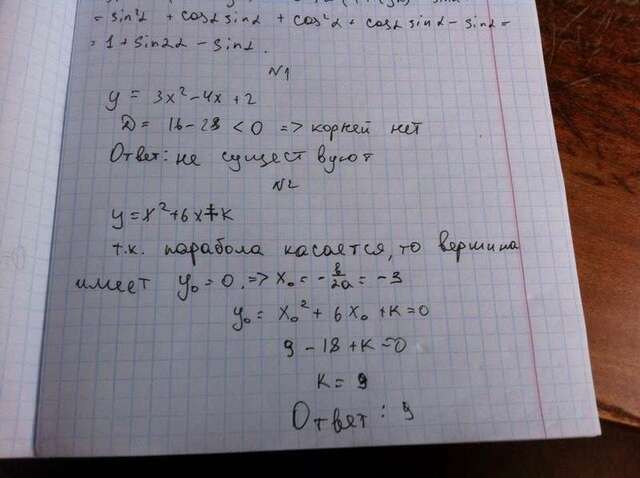 = sin²α + cosα sinα + cos²α + cosα sinα - sinα =
= 1 + sin2α - sinα.
N1
y = 3x² - 4x + 2
D = 16 - 28 < 0 => корней нет
Ответ: не существуют
N2
y = x² + 6x + k
т.к. парабола касается, то вершина
имеет y₀ = 0. => x₀ = - b/2a = -3
y₀ = x₀² + 6x₀ + k = 0
9 - 18 + k = 0
k = 9
Ответ: 9